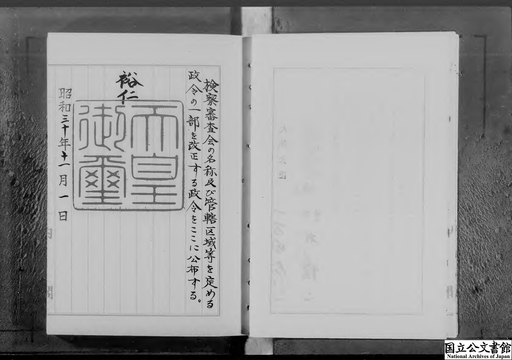 検察審査会の名称及び管轄区域等を定める
政令の一部を改正する政令をここに公布する。
裕仁
天皇
御璽
昭和三十年十一月一日
国立公文書館
National Archives of Japan